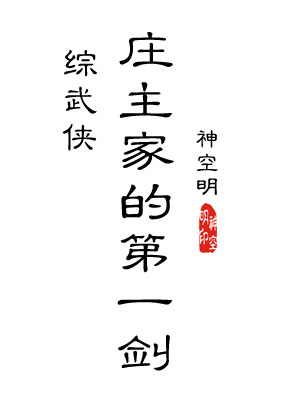 综武侠
庄主家的第一剑
神空明
神空明印